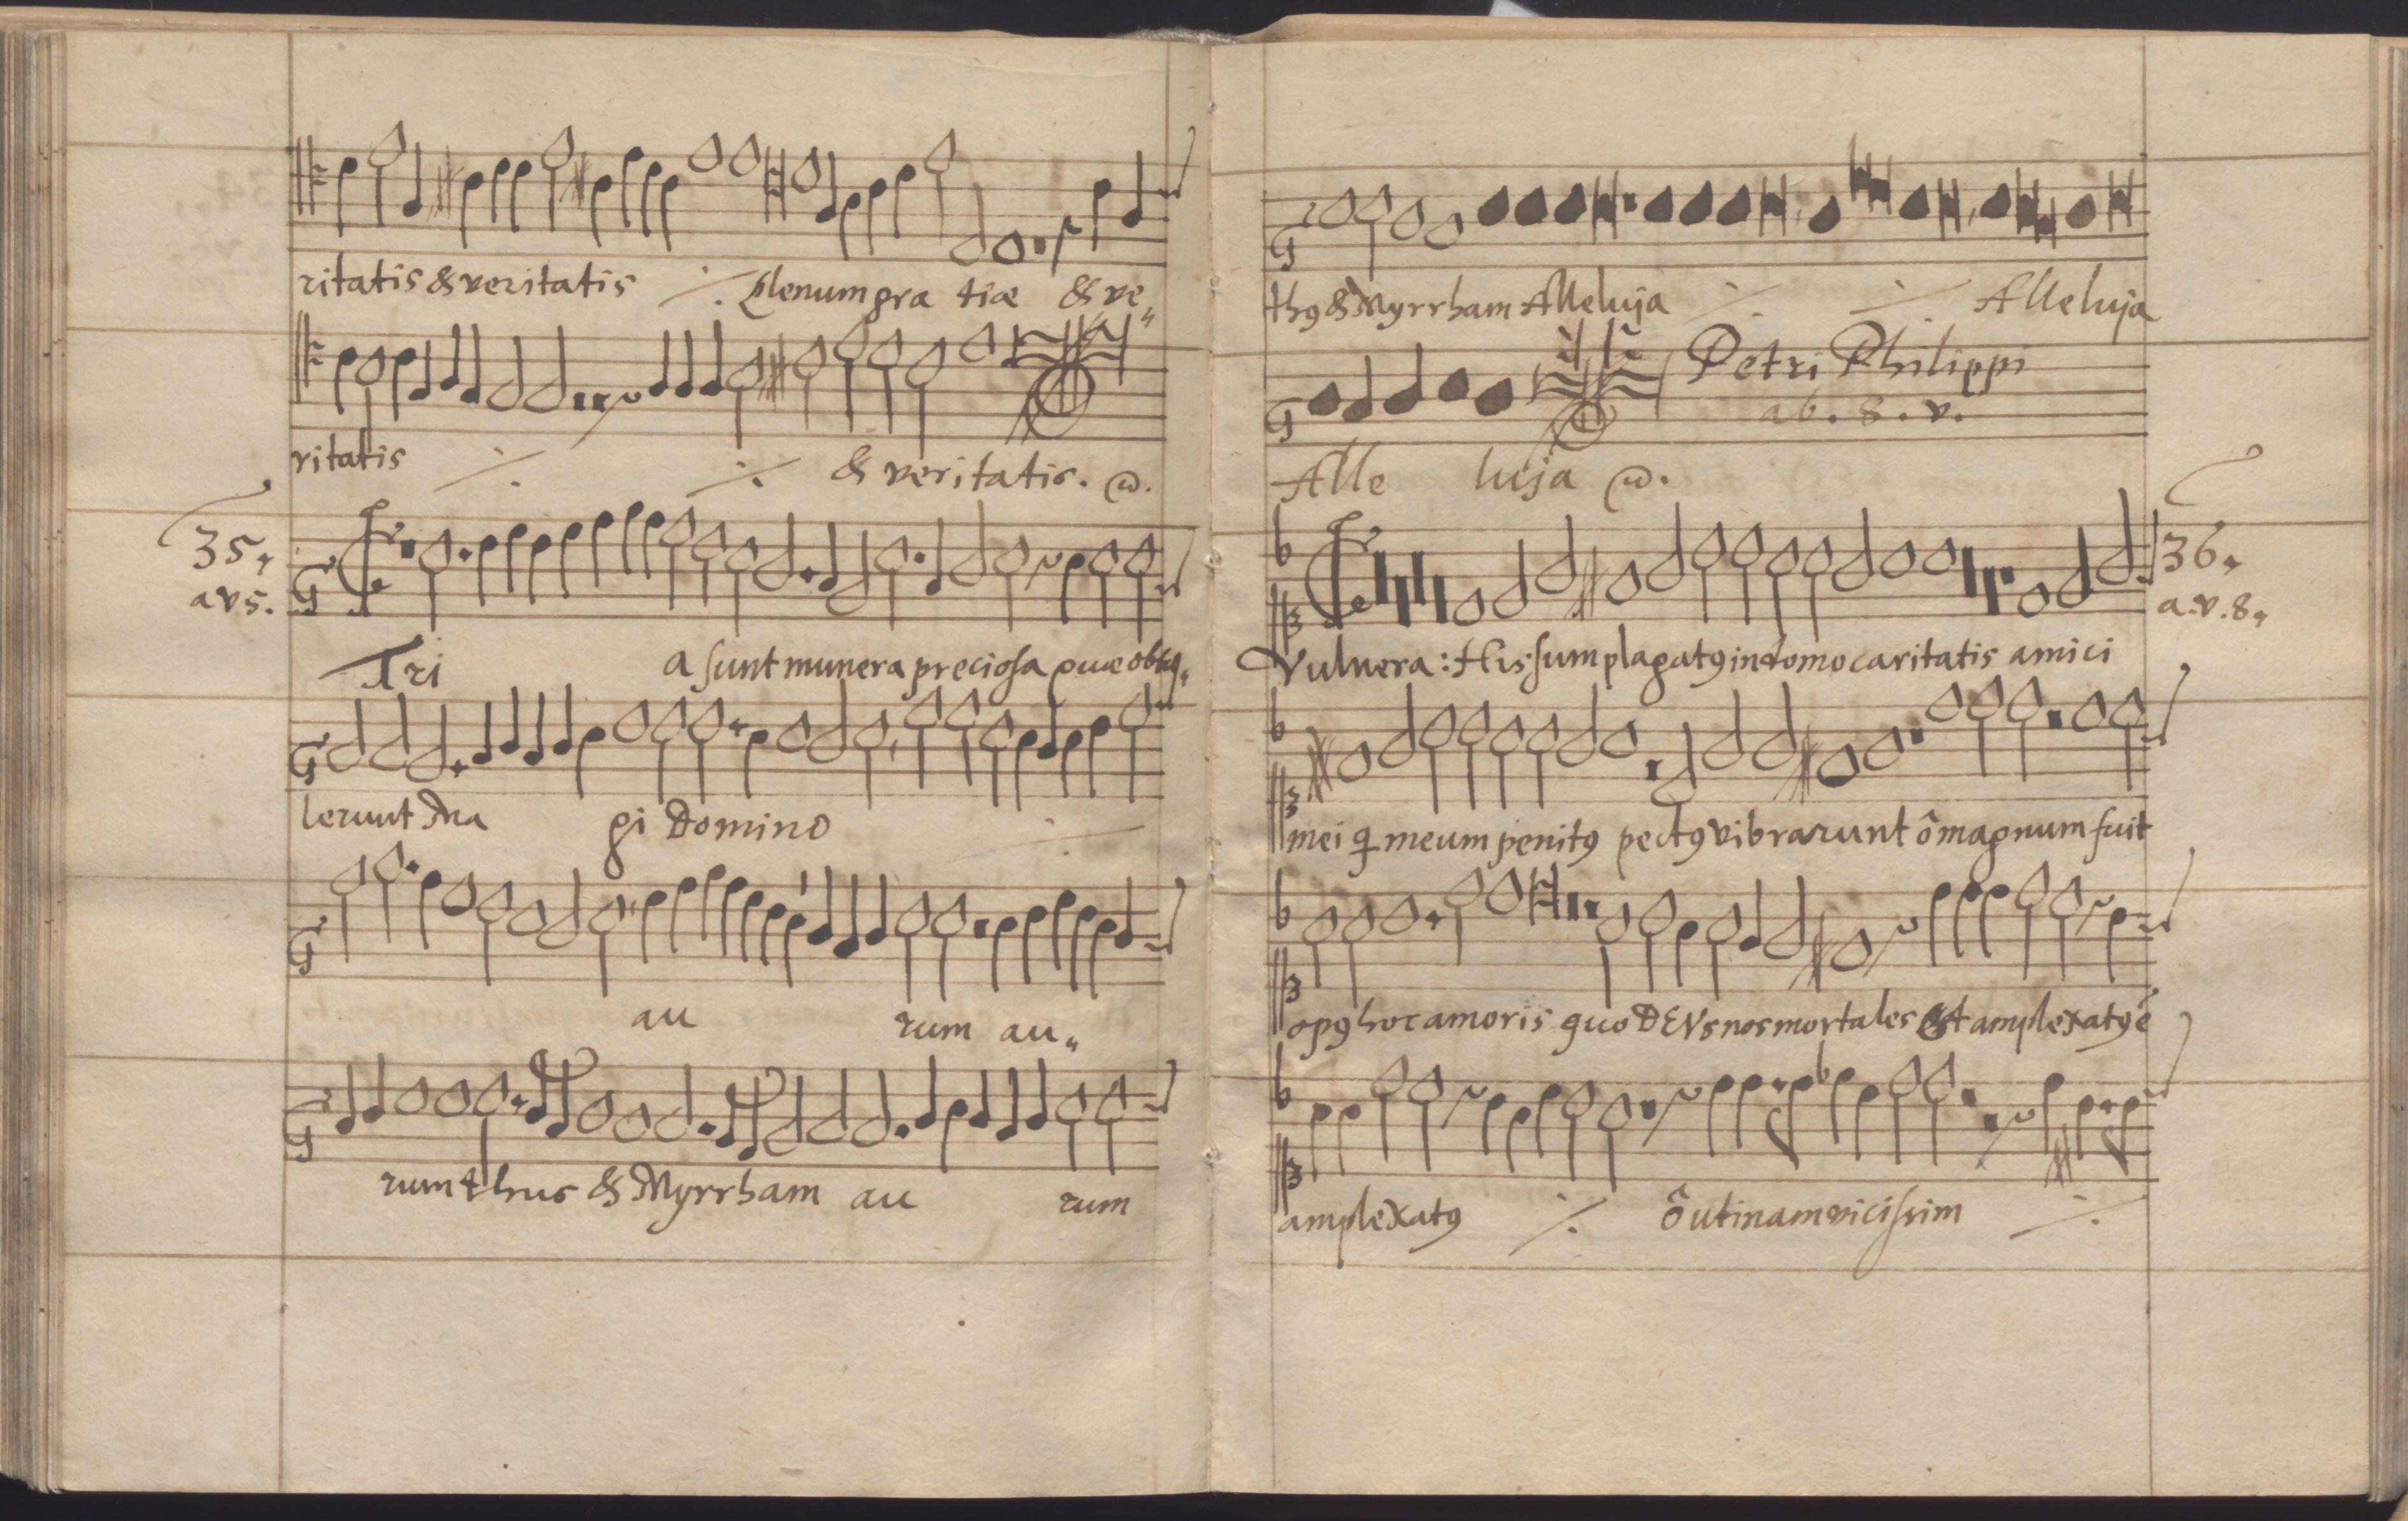 ritatis & veritatis ⁒ Plenum gra tiæ & ve„
ritatis ⁒ ⁒ & veritatis.
35„
a v 5.
Tri a sunt munera preciosa quæ obtu„
lerunt Ma gi Domino ⁒
au rum au„
rum thus & Myrrham au rum
thꝯ & Myrrham Alleluja ⁒ ⁒ Alleluja
Petri Philippi
ab. 8. v.
Alle luja
36„
a. v. 8„
Vulnera: His sum plagatꝯ in domo caritatis amici
mei q meum penitꝯ pectꝯ vibrarunt ô magnum fuit
opꝯ hoc amoris quo DEVs nos mortales est amplexatꝯ é
amplexatꝯ ⁒ ô utinam vicissim ⁒